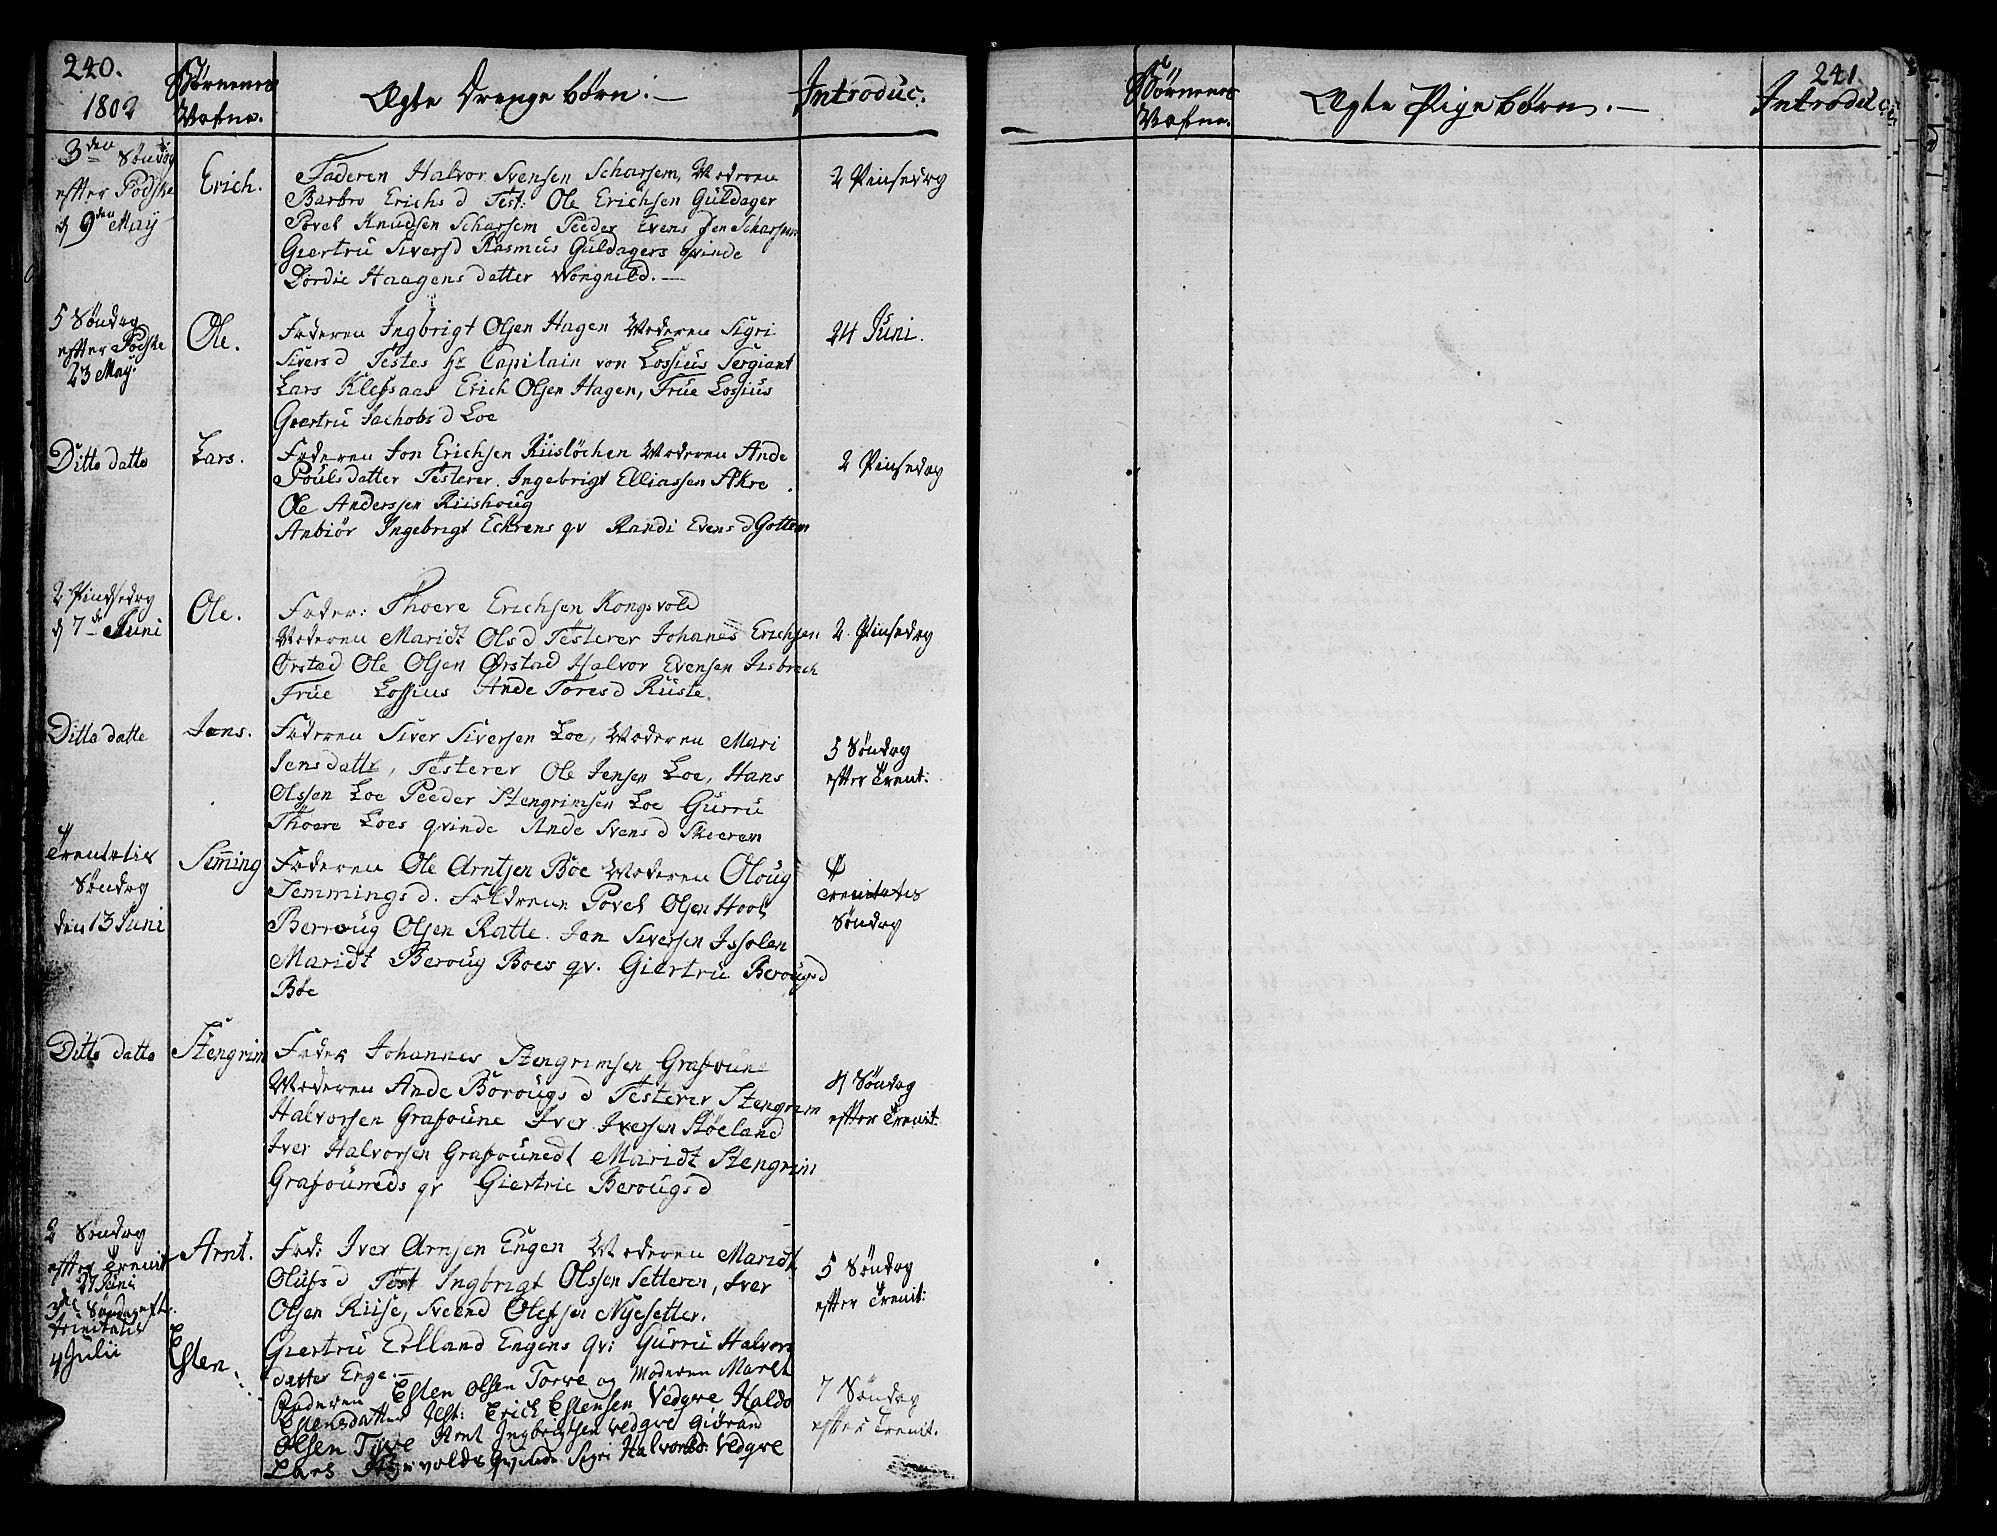 240.
1802
Børnenes
Nafne.
Ægte Drengebørn.
Introduc.
3den Søndag
efter Podske
d 9den May
Erich.
Faderen Halvor Svensen Scharsem, Moderen
Barbro Erichs d Test: Ole Erichsen Guldager
Povel Knudsen Scharsem Peeder Evensen Scharsem
Giertru Sivers d Rasmus Guldagers qvinde
Dordie Haagens datter Vongnild.
2 Pinsedag
5 Søndag
efter Podske
23 May.
Ole.
Faderen Ingbrigt Olsen Hagen Moderen Sigri
Sivers d Testes Hr Capitain von Lossius Sergiant
Lars Klefsaas Erich Olsen Hagen, Frue Lossius
Giertru Jachobs d Loe
24 Juni.
Ditto datto
Lars.
Faderen Jon Erichsen Riislöchen Moderen Ande
Pouls datter Testerer. Ingebrigt Elliassen Akre
Ole Anderssen Riishoug
Anbiör Ingebrigt Echrens qv Randi Evens d Gottem
2 Pinsedag
2 Pindsedag
d 7de Juni
Ole.
Fader: Thoere Erichsen Kongsvold
Moderen Maridt Ols d Testerer Johanes Erichsen
Ørstad Ole Olsen Ørstad Halvor Evensen Isbrech
Frue Lossius Ande Tores d Ruste.
2. Pinsedag
Ditto datte
Jens.
Faderen Siver Siversen Loe, Moderen Mari
Jensdatte, Testerer Ole Jensen Loe, Hans
Olssen Loe Peeder Stengrimsen Loe Gurru
Thoere Loes qvinde Ande Svens d Skoerem
5 Søndag
efter Trenit:
Trenetis
Søndag
den 13 Juni
Seming
Faderen Ole Arntsen Böe Moderen Oloug
Semmings d. Faldrene Povel Olsen Hool
Berroug Olsen Ratte. Jon Siversen Issolen
Maridt Beroug Boes qv. Giertru Berougs d
Böe
Trenitatis
Søndag
Ditto datto
Stengrim
Fader Johannes Stengrimsen Grafoune
Moderen Ande Borougs d Testerer Stengrim
Halvorsen Grafoune Iver Iversen Stöeland
Iver Halvorsen Grafounedt Maridt Stengrim
Grafouneds qv Giertrie Berougs d
4 Søndag
efter Trenit.
2 Søndag
efter Trenit
27 Juni
Arnt.
Fad: Iver Arnsen Engen Moderen Maridt
Olufs d Test Ingbrigt Olssen Setteren, Iver
Olsen Riise, Sveend Olefsen Nyesetter.
Giertru Erlland Engens qv: Gurru Halvors
datter Enge.
5 Søndag
efter Trenit:
3die Søndag eft.
trinitatis
4 Julii
Esten.
Faderen Esten Olsen Torve og Moderen Marit
Estensdatter Test: Erich Estensen Vedgve Haldo
Olsen Torve Arnt Ingbrigtsen Vedgve Giöran
Lars qvinde Sigri Halvorsd: Vedgve
7 Søndag
efter Trenit.
241.
Børnenes
Nafne.
Ægte Pigebørn.
Introduc: